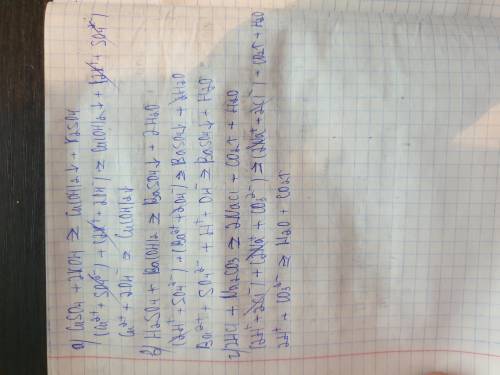 а) CuSO4 + 2KOH ⇒ Cu(OH)2↓ + K2SO4
(Cu²⁺ + SO4²⁻) + (2K⁺ + 2OH⁻) ⇒ Cu(OH)2↓ + (2K⁺ + SO4²⁻)
Cu²⁺ + 2OH⁻ ⇒ Cu(OH)2↓
в) H2SO4 + Ba(OH)2 ⇒ BaSO4↓ + 2H2O
(2H⁺ + SO4²⁻) + (Ba²⁺ + 2OH⁻) ⇒ BaSO4↓ + 2H2O
Ba²⁺ + SO4²⁻ + H⁺ + OH⁻ ⇒ BaSO4↓ + H2O
г) 2HCl + Na2CO3 ⇒ 2NaCl + CO2↑ + H2O
(2H⁺ + 2Cl⁻) + (2Na⁺ + CO3²⁻) ⇒ (2Na⁺ + 2Cl⁻) + CO2↑ + H2O
2H⁺ + CO3²⁻ ⇒ H2O + CO2↑